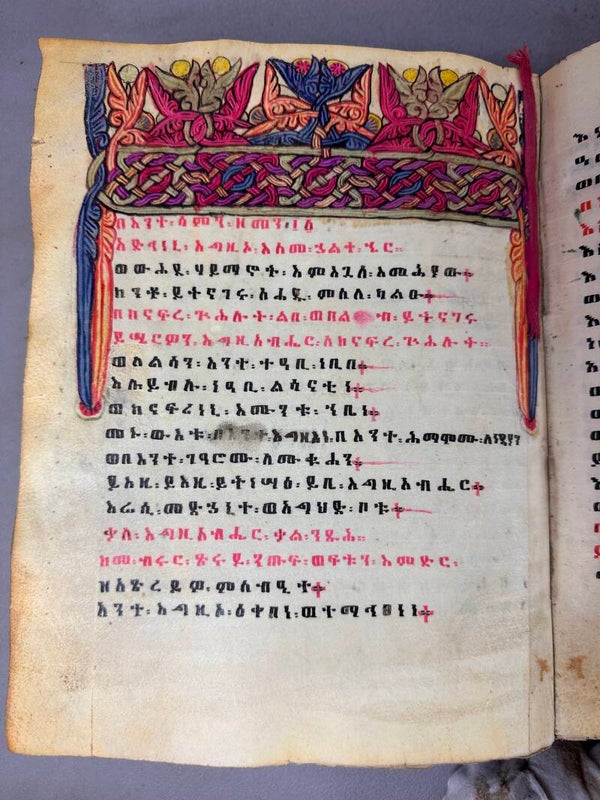 በእንተ፡ ሳምን፡ ዘመን፡ ፲ ፩
አድኅነኒ፡ እግዚኦ፡ እስመ፡ ኃልቀ፡ ኄር።
ወውሕደ፡ ሃይማኖት፡ እምእጓለ፡ እመሕያው።
ከንቶ፡ ይትናገሩ፡ አሐዱ፡ ምስለ፡ ካልኡ።
በከናፍረ፡ ጕሕሉት፡ ልበ፡ ወበልብ፡ ይትናገሩ
ይሤርዎን፡ እግዚአብሔር፡ ለከናፍረ፡ ጕሕሉት።
ወለልሳን፡ እንተ፡ ተዓቢ፡ ነቢበ።
እለ፡ ይብሉ፡ ነዓቢ፡ ልሳናቲነ።
ወከናፍሪነኒ፡ እሙንቱ፡ ኀቤነ።
መኑ፡ ውእቱ፡ እግዚእነ፡ በእንተ፡ ሕማሞሙ፡ ለነዳያን
ወበእንተ፡ ገዓሮሙ፡ ለሙቁሓን።
ይእዜ፡ ይእዜ፡ እትነሣዕ፡ ይቤ፡ እግዚአብሔር።
እሬሲ፡ መድኃኒተ፡ ወእግህድ፡ ቦቱ።
ቃለ፡ እግዚአብሔር፡ ቃል፡ ንጹሕ።
ከመ፡ ብሩር፡ ጽሩይ፡ ንጡፍ፡ ወፍቱን፡ እምድር፡
ዘአጽረይዎ፡ ምስብዒተ።
አንተ፡ እግዚኦ፡ ዕቀበነ፡ ወተማኅፀነነ።